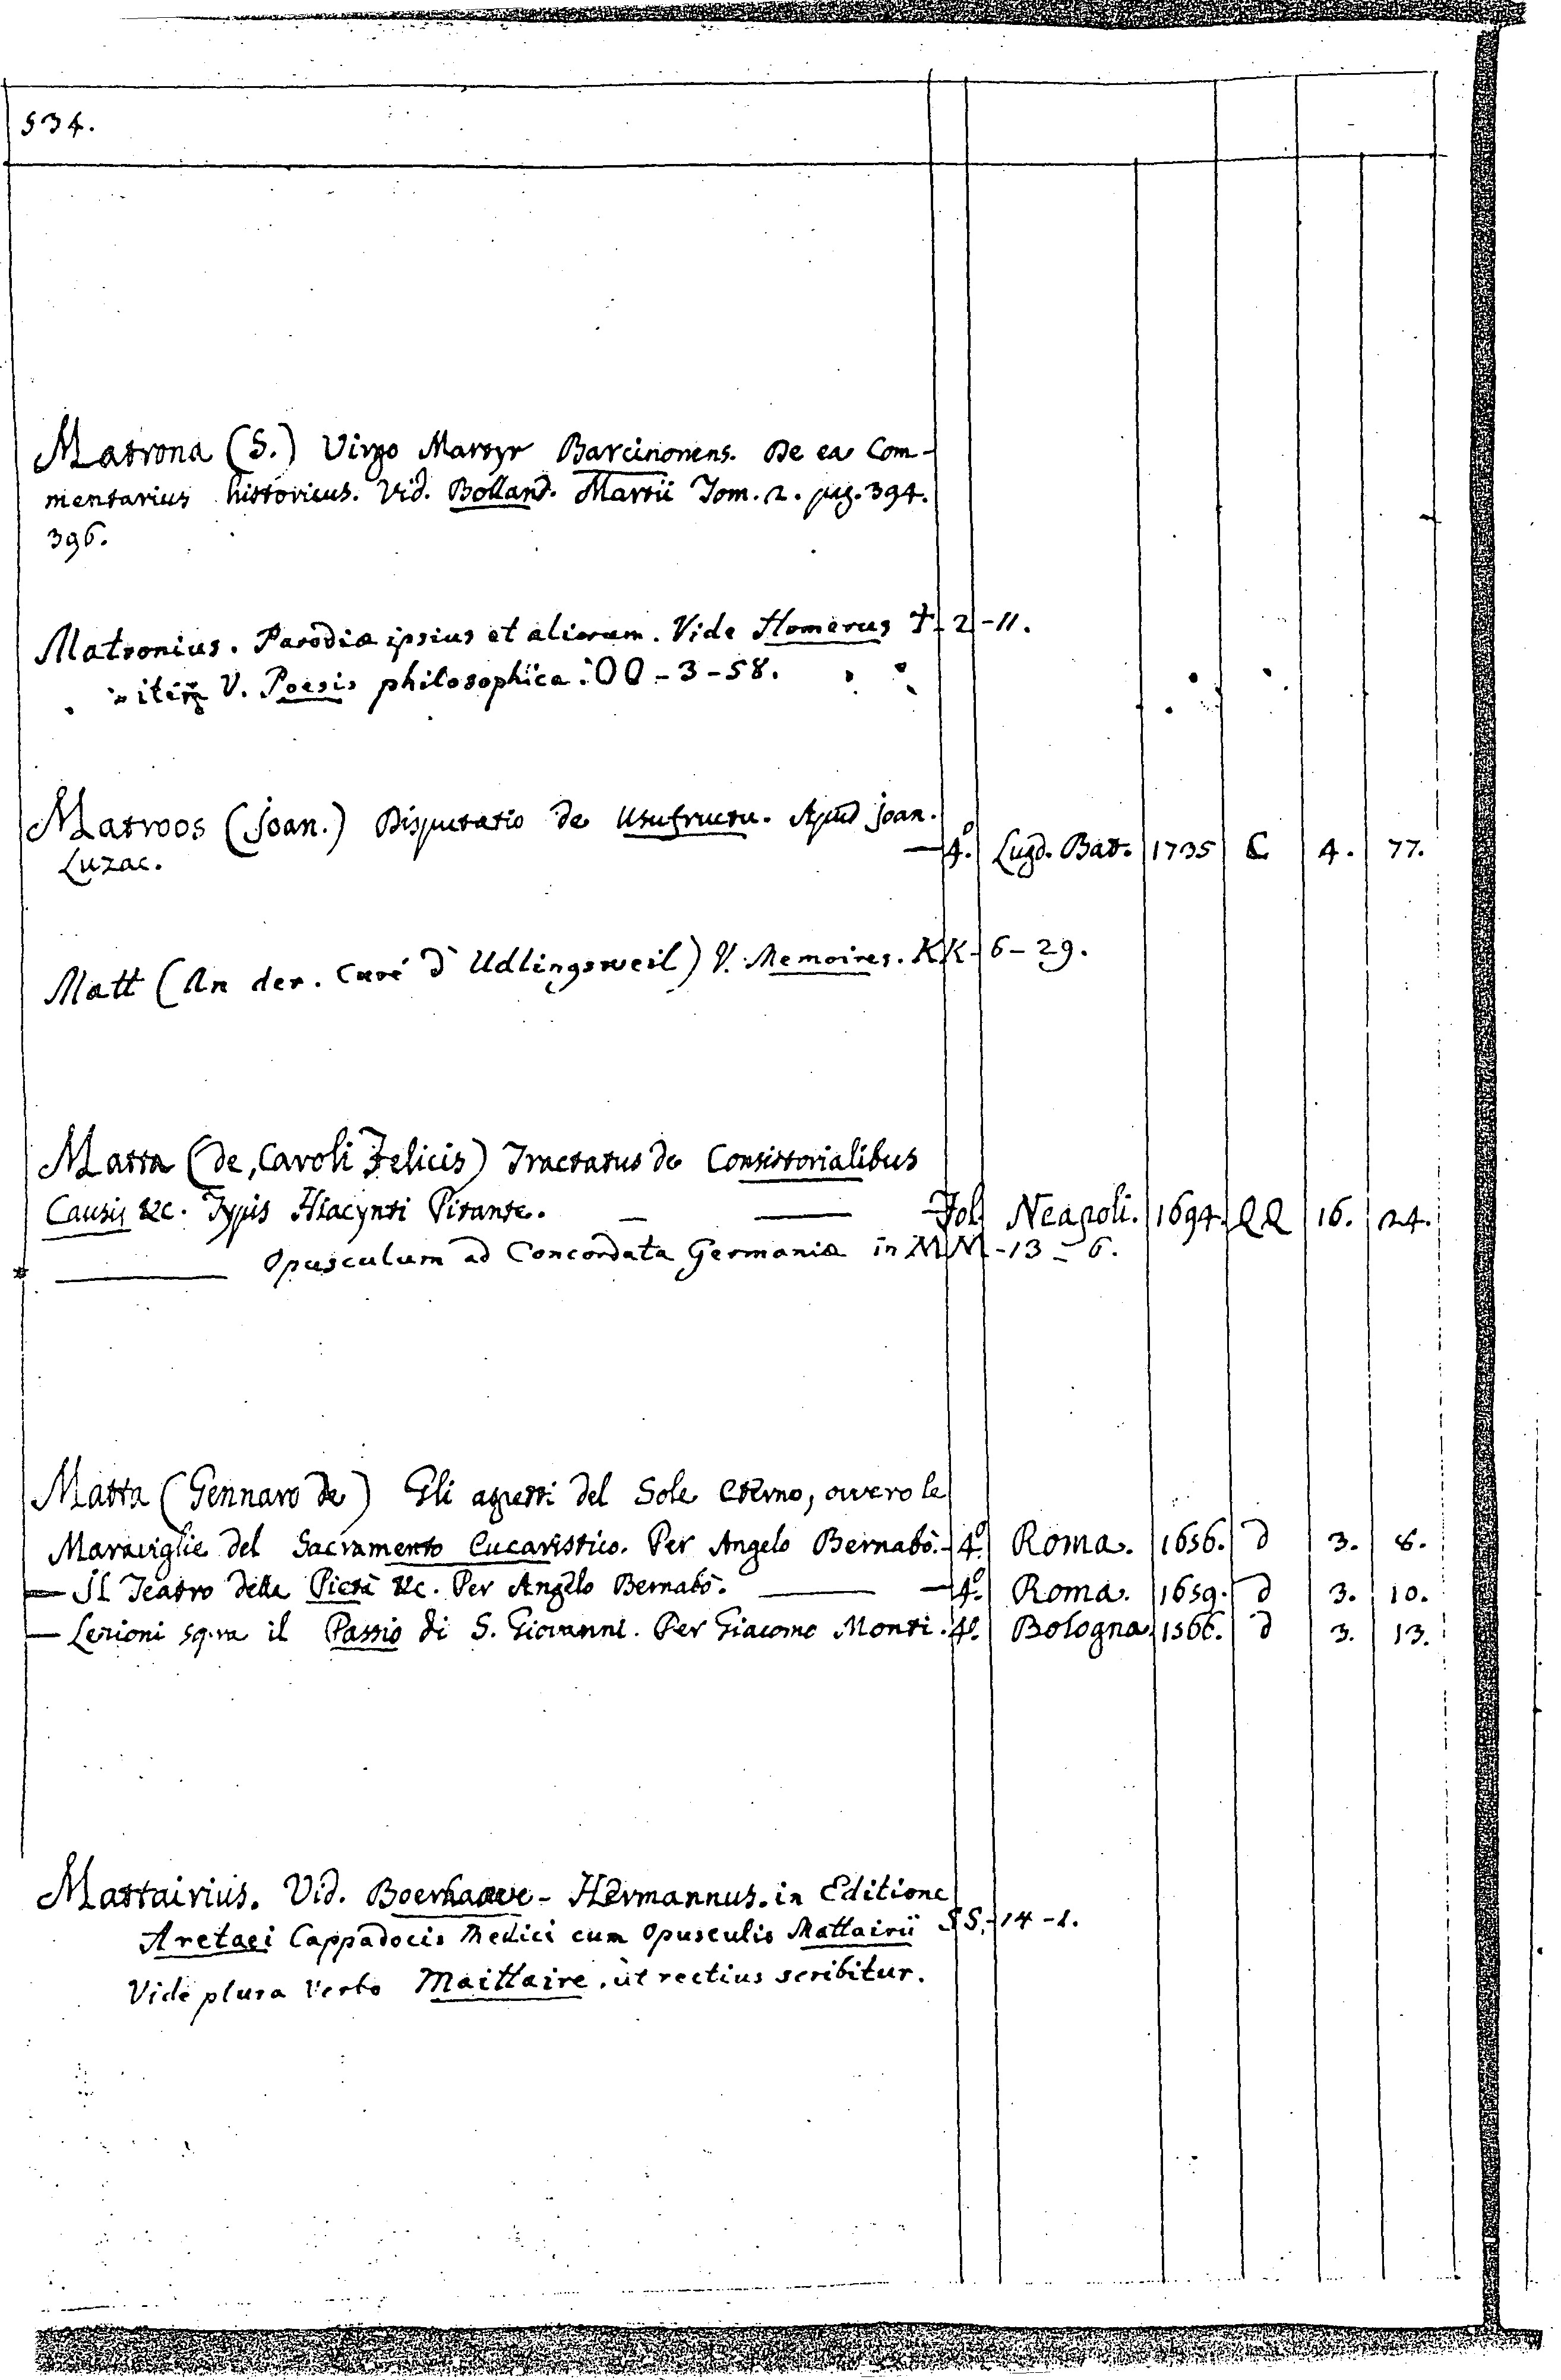 534.
Matrona (S.) Virgo Martyr Barcinonens. De ea Com-
mentarius historicus. Vid. Bolland. Martii Tom. 2. pag. 394.
396.
Matronius. Parodiæ ipsius et aliorum. Vide Homerus T-2-11.
item V. Poesis philosophica: OO-3-58.
Matroos (Joan.) Disputatio de Usufructu. Apud Joan.
Luzac. — 4.º Lugd. Bat. 1735 C 4. 77.
Matt (An der. Curé d'Udlingsweil) V. Memoires. KK-6-29.
Matta (de, Caroli Felicis) Tractatus de Consistorialibus
Causis &c. Typis Hiacynti Pitante. — — Fol. Neapoli. 1694. QQ 16. 24.
* — Opusculum ad Concordata Germaniæ in MM-13-6.
Matta (Gennaro de) Gli aspetti del Sole Eterno, ovvero le
Maraviglie del Sacramento Eucaristico. Per Angelo Bernabò. - 4.º Roma. 1656. d 3. 8.
— Il Teatro della Pietà &c. Per Angelo Bernabò. — — 4.º Roma. 1659. d 3. 10.
— Lezioni sopra il Passio di S. Giovanni. Per Giacomo Monti. 4.º Bologna. 1566. d 3. 13.
Mattairius. Vid. Boerhaave - Hermannus. in Editione
Aretaei Cappadocis Medici cum Opusculis Mattairii SS.-14-1.
Vide plura Verbo Maittaire, ut rectius scribitur.